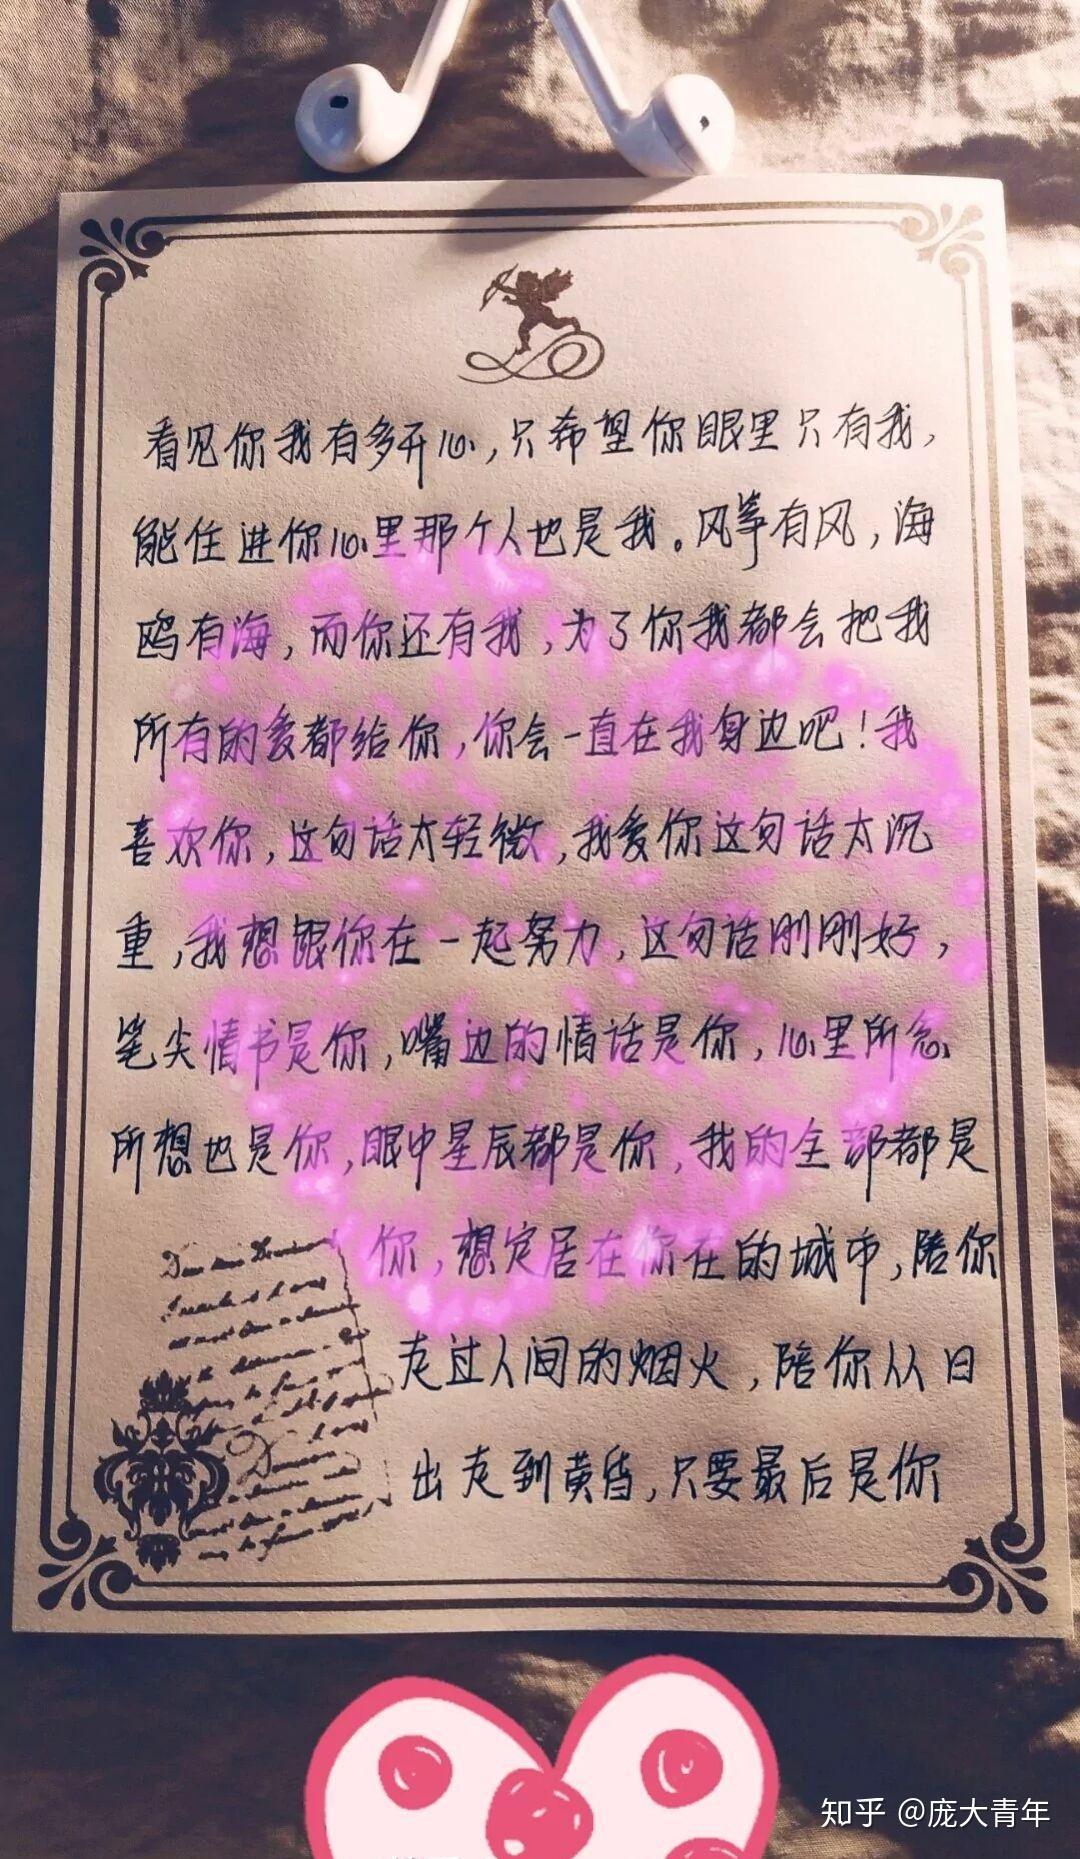 看见你我有多开心，只希望你眼里只有我，
能住进你心里那个人也是我。风筝有风，海
鸥有海，而你还有我，为了你我都会把我
所有的爱都给你，你会一直在我身边吧！我
喜欢你，这句话太轻微，我爱你这句话太沉
重，我想跟你在一起努力，这句话刚刚好，
笔尖情书是你，嘴边的情话是你，心里所念
所想也是你，眼中星辰都是你，我的全部都是
你，想定居在你在的城市，陪你
走过人间的烟火，陪你从日
出走到黄昏，只要最后是你
知乎 @庞大青年